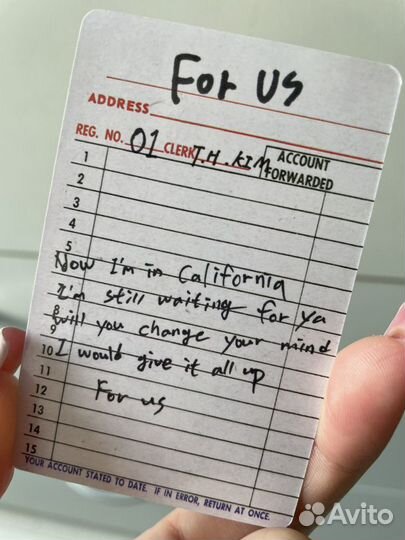 For us
ADDRESS
REG. NO. 01 CLERK T.H. KIM ACCOUNT FORWARDED
1
2
3
4
5
Now I'm in California
I'm still waiting for ya
8 Will you change your mind
9
10 I would give it all up
11
12 For us
13
14
15
YOUR ACCOUNT STATED TO DATE. IF IN ERROR, RETURN AT ONCE.
Avito